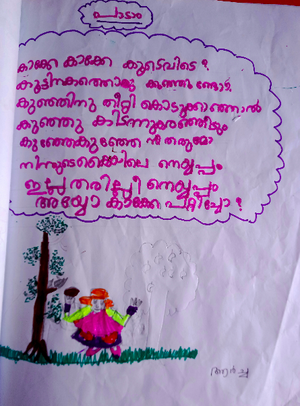 പാടാം
കാക്കേ കാക്കേ കൂടെവിടെ ?
കൂടിനകത്തൊരു കുഞ്ഞുണ്ടോ.
കുഞ്ഞിനു തീറ്റി കൊടുക്കാഞ്ഞാൽ
കുഞ്ഞു കിടന്നുകരഞ്ഞീടും
കുഞ്ഞേകുഞ്ഞേ നീ തരുമോ
നിന്നുടെകൈയിലെ നെയ്യപ്പം
ഇല്ല തരില്ലീ നെയ്യപ്പം
അയ്യോ കാക്കേ പറ്റിച്ചോ ?